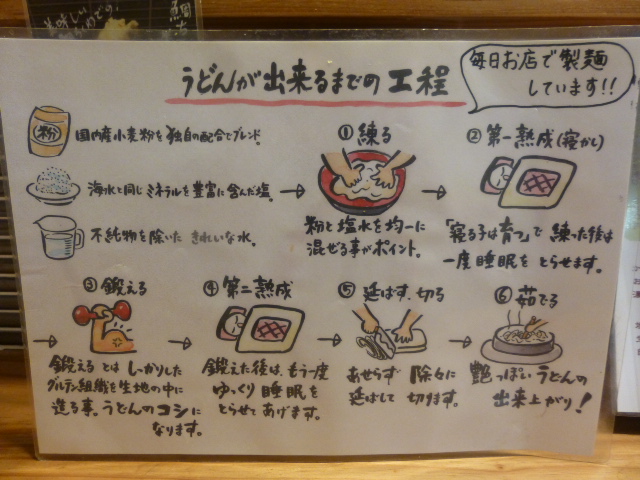 うどんが出来るまでの工程
毎日お店で製麺
しています!!
粉
国内産小麦粉を独自の配合でブレンド。
海水と同じミネラルを豊富に含んだ塩。
不純物を除いたきれいな水。
①練る
粉と塩水を均一に
混ぜる事がポイント。
②第一熟成(寝かし)
「寝る子は育つ」で練った後は
一度睡眠をとらせます。
③鍛える
鍛えるとはしっかりした
グルテン組織を生地の中に
造る事。うどんのコシに
なります。
④第二熟成
鍛えた後は、もう一度
ゆっくり睡眠を
とらせてあげます。
⑤延ばす、切る
あせらず除々に
延ばして切ります。
⑥茹でる
艶っぽいうどんの
出来上がり!